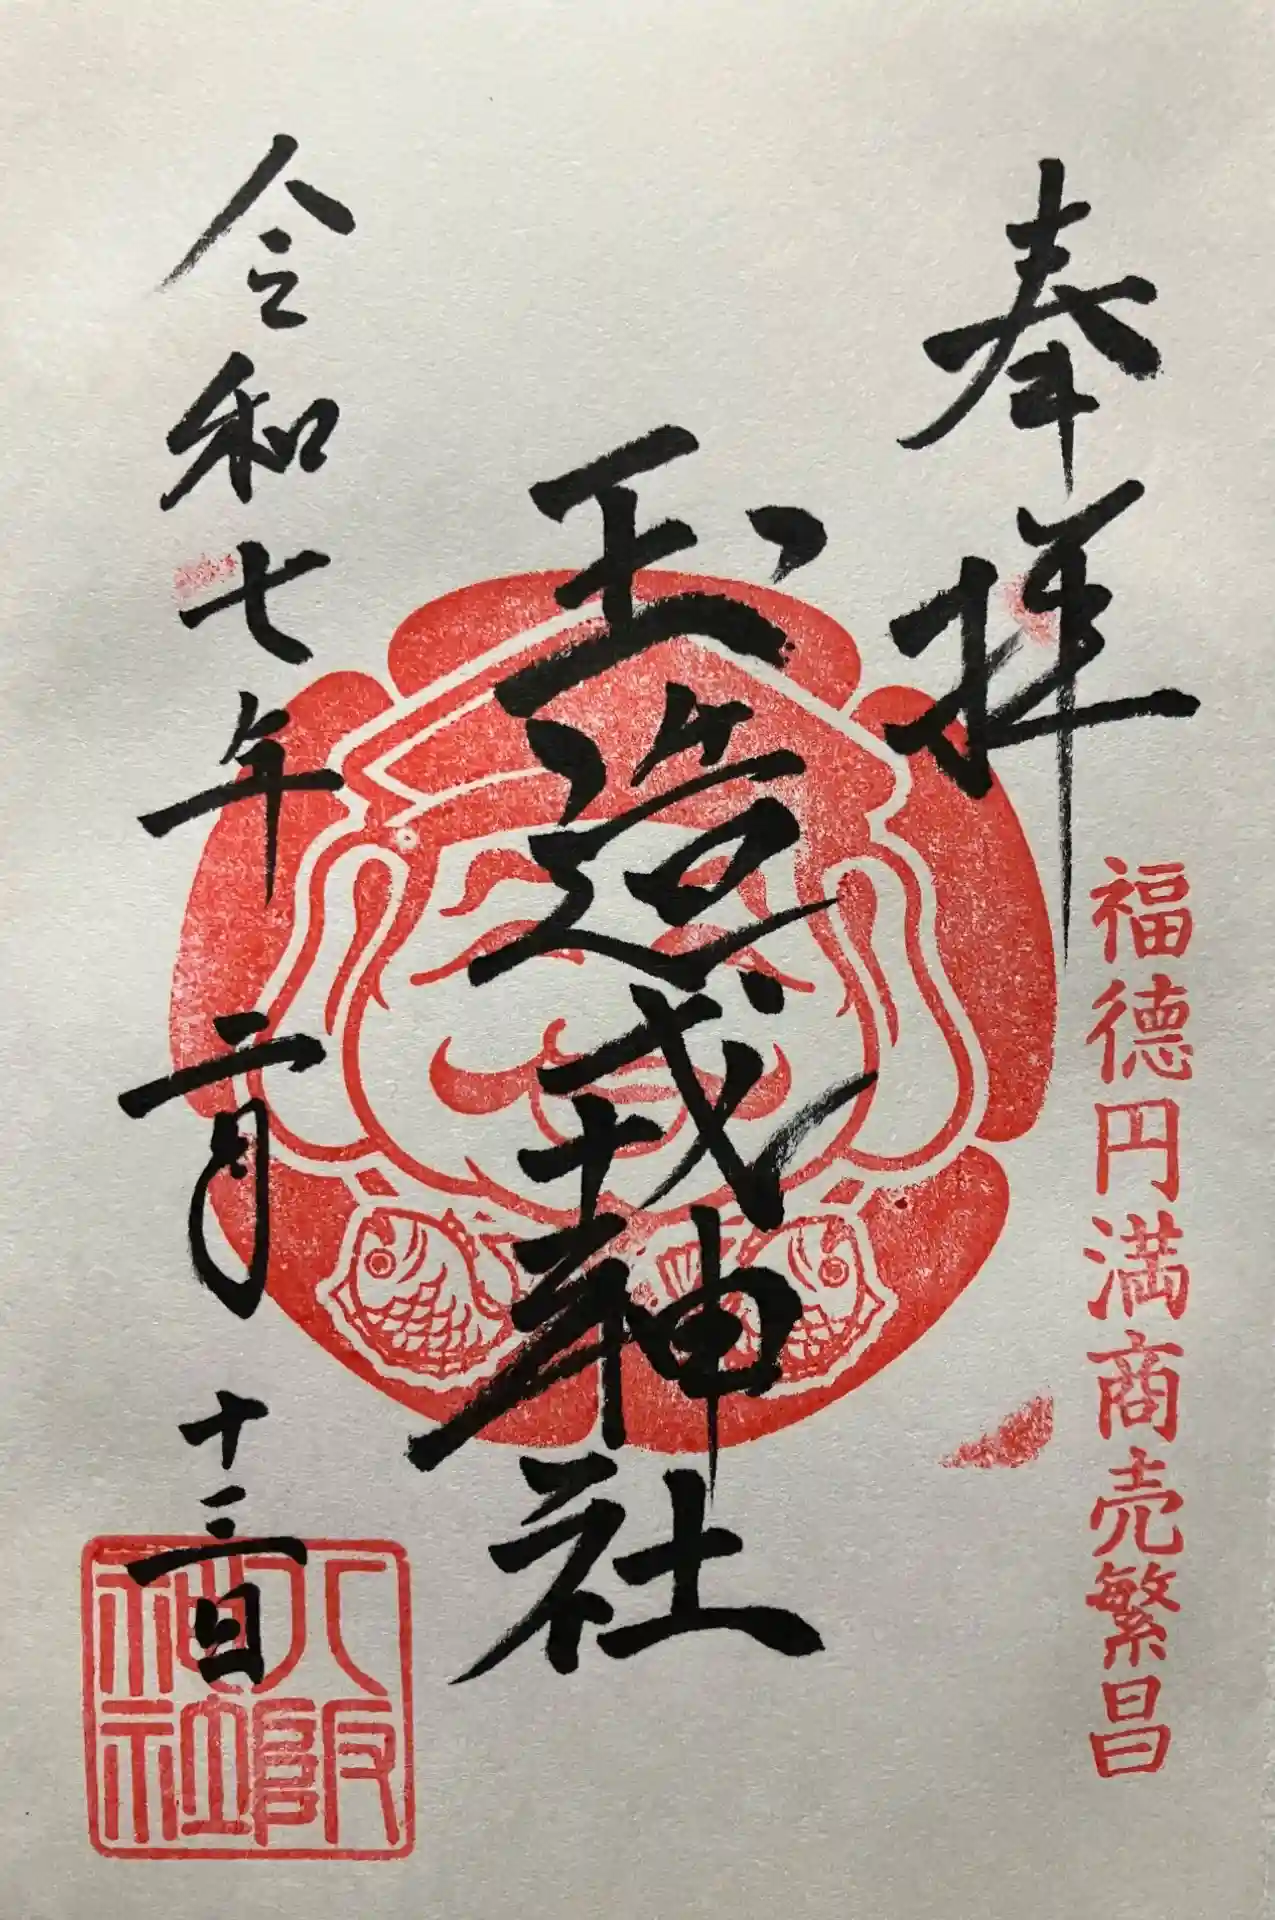 奉拝
福徳円満商売繁昌
玉造戎神社
令和七年二月十三日
八阪
神社